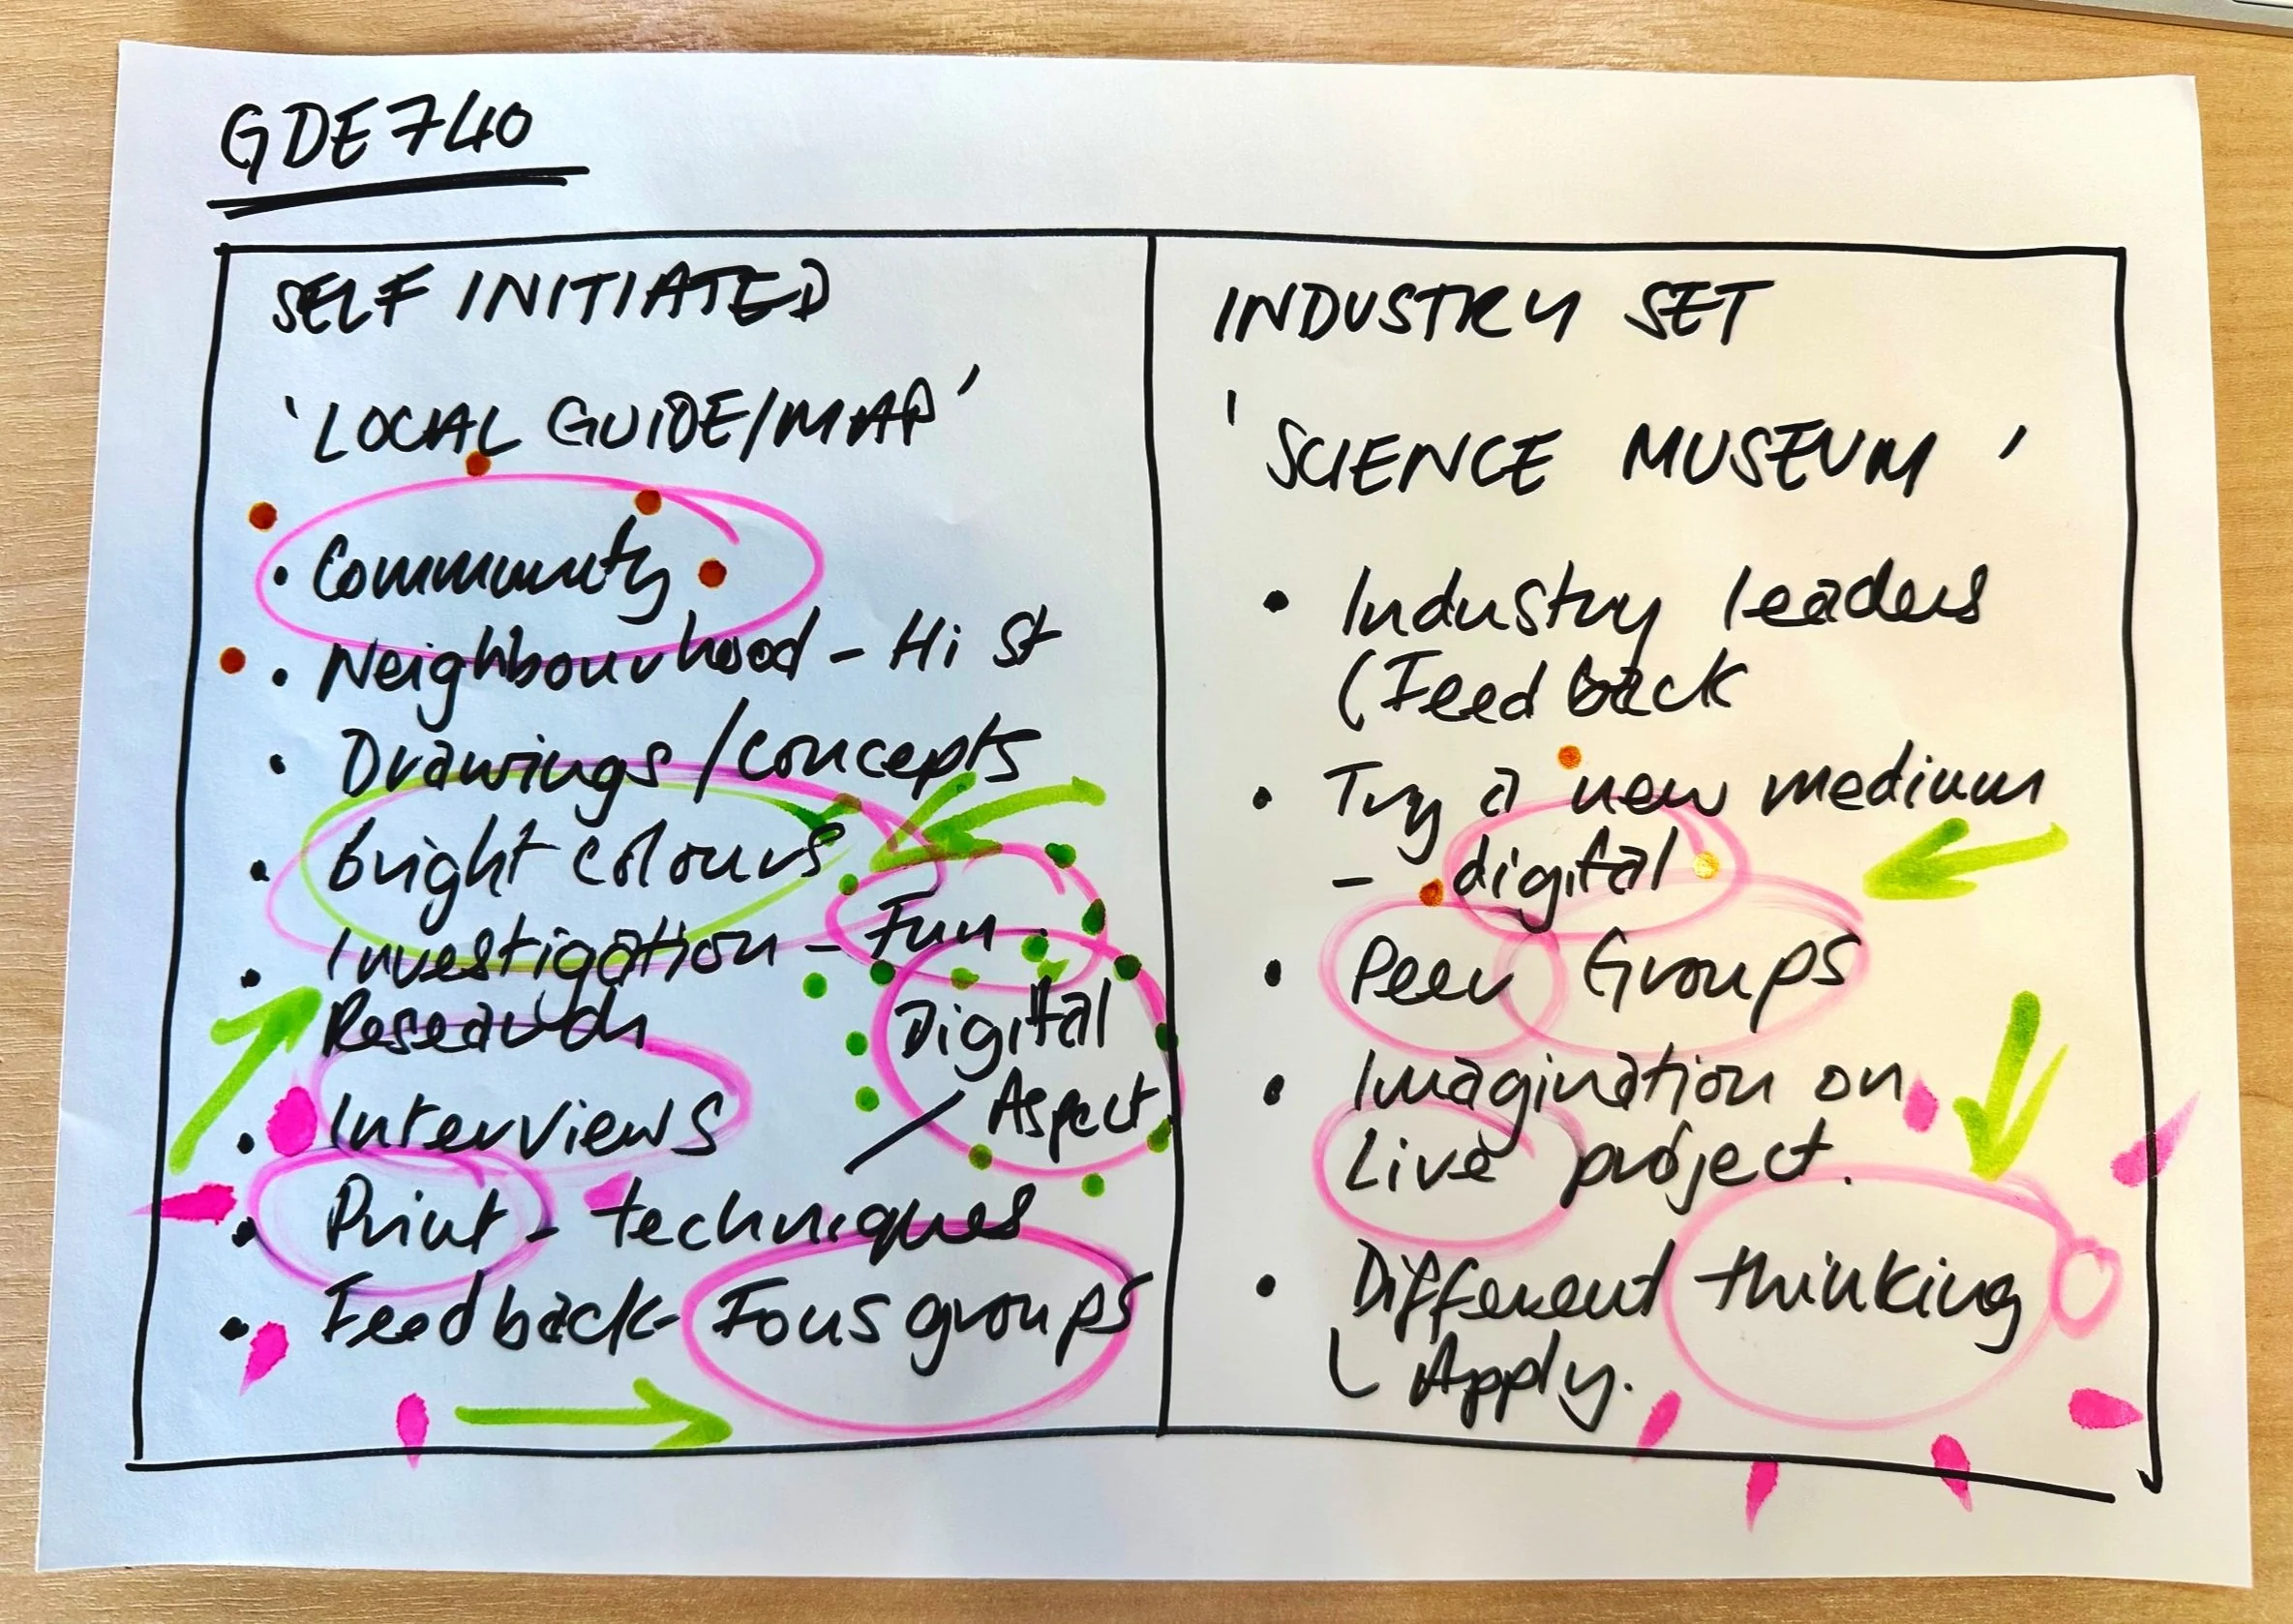 GDE740
SELF INITIATED
'LOCAL GUIDE/MAP'
• Community
• Neighbourhood - Hi St
• Drawings/concepts
• Bright colours
• Investigation - Fun
Research
Digital
/ Aspect
• Interviews
• Print - techniques
• Feedback - Focus groups
INDUSTRY SET
'SCIENCE MUSEUM'
• Industry leaders
(Feedback
• Try a new medium
- digital
• Peer Groups
• Imagination on
Live project.
• Different thinking
Apply.